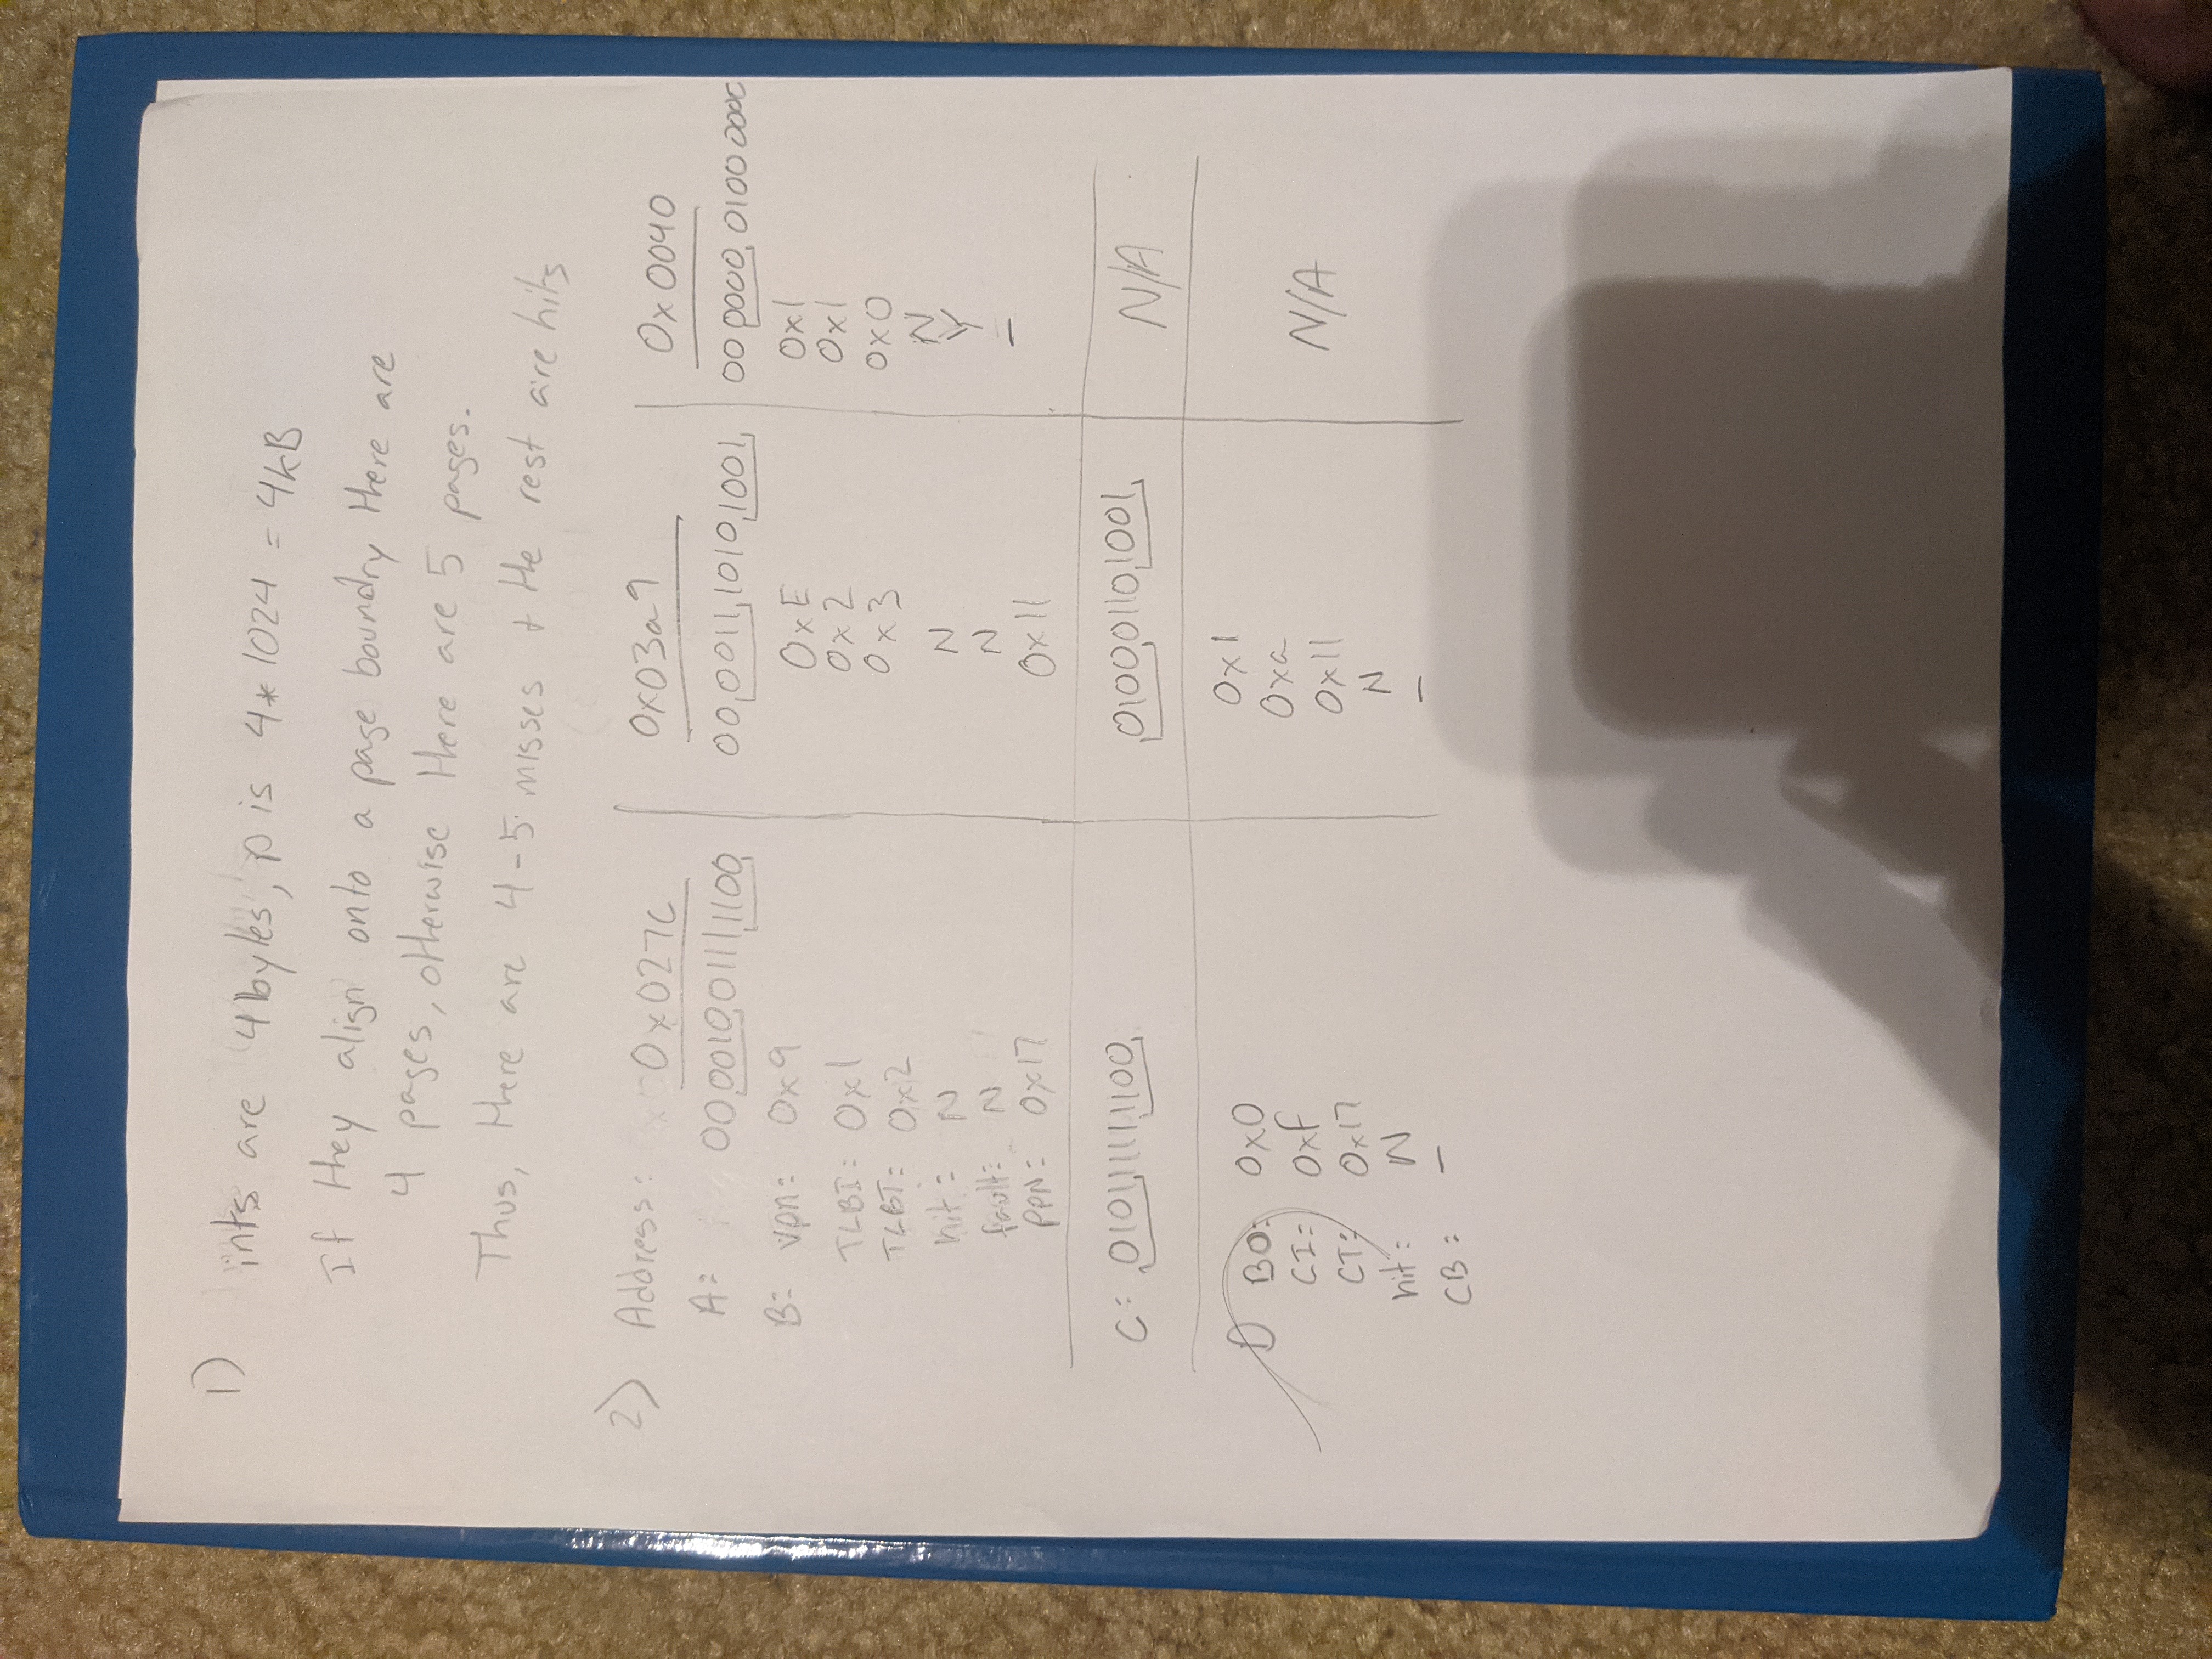 1) ints are 4bytes, p is 4*1024 = 4kB
If they align onto a page boundry there are
4 pages, otherwise there are 5 pages.
Thus, there are 4-5 misses + the rest are hits
2) Address: 0x027c 0x03a9 0x0040
A: 00001001111100 00001110101001 00000001000000
B: vpn: 0x9 0xE 0x1
TLBI: 0x1 0x2 0x1
TLBT: 0x2 0x3 0x0
hit: N N N
fault: N N Y
PPN: 0x17 0x11 –
C: 010111111100 010001101001 N/A
D BO: 0x0 0x1
CI: 0xf 0xa
CT: 0x17 0x11 N/A
hit: N N
CB: – –